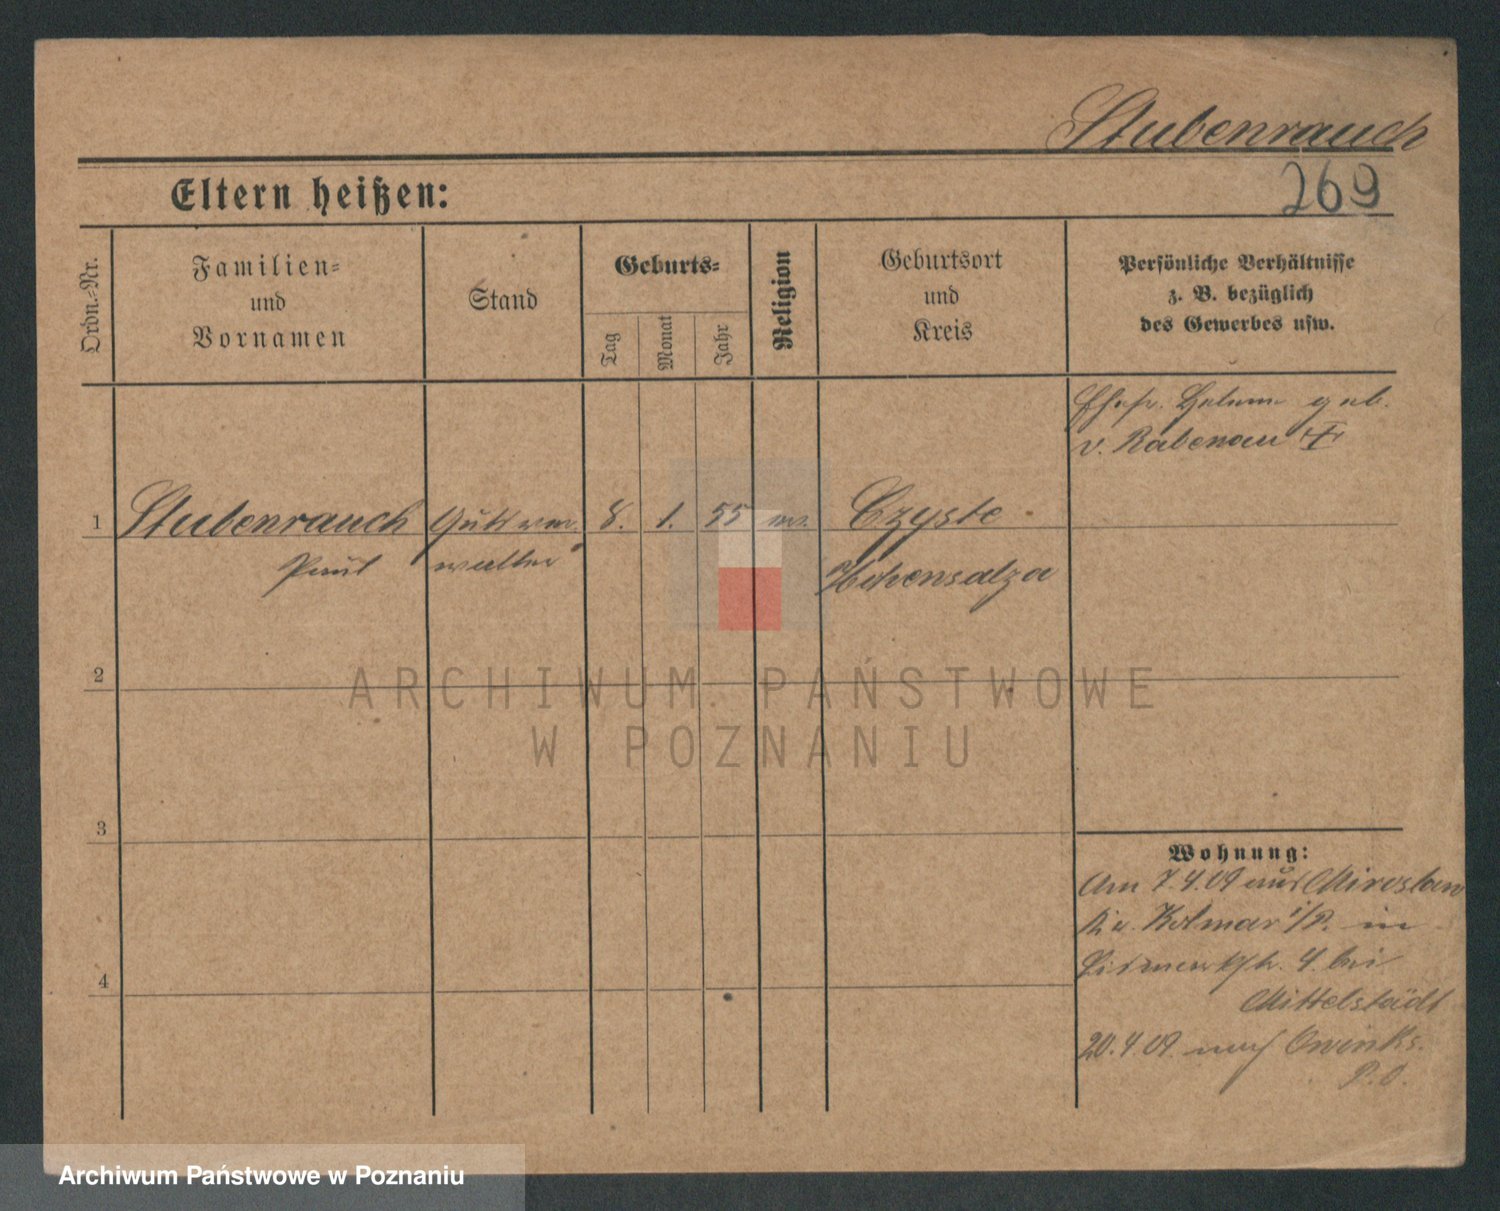 Stubenrauch
269
Eltern heißen:
Ordn.=Nr.
Familien=
und
Vornamen
Stand
Geburts=
Tag
Monat
Jahr
Religion
Geburtsort
und
Kreis
Persönliche Verhältnisse
z. B. bezüglich
des Gewerbes usw.
Ehefr. Helene geb.
v. Rabenau
1
Stubenrauch
Gutsver
8.
1.
55
ev.
Czyste
Paul
walter
Hohensalza
2
ARCHIWUM PAŃSTWOWE
W POZNANIU
3
Wohnung:
Am 7.4.09 aus Miroslaw
Kr. Kolmar i/P. in
4. bei
4
Mittelstädt
20.4.09. nach Owinks.
P.O.
Archiwum Państwowe w Poznaniu